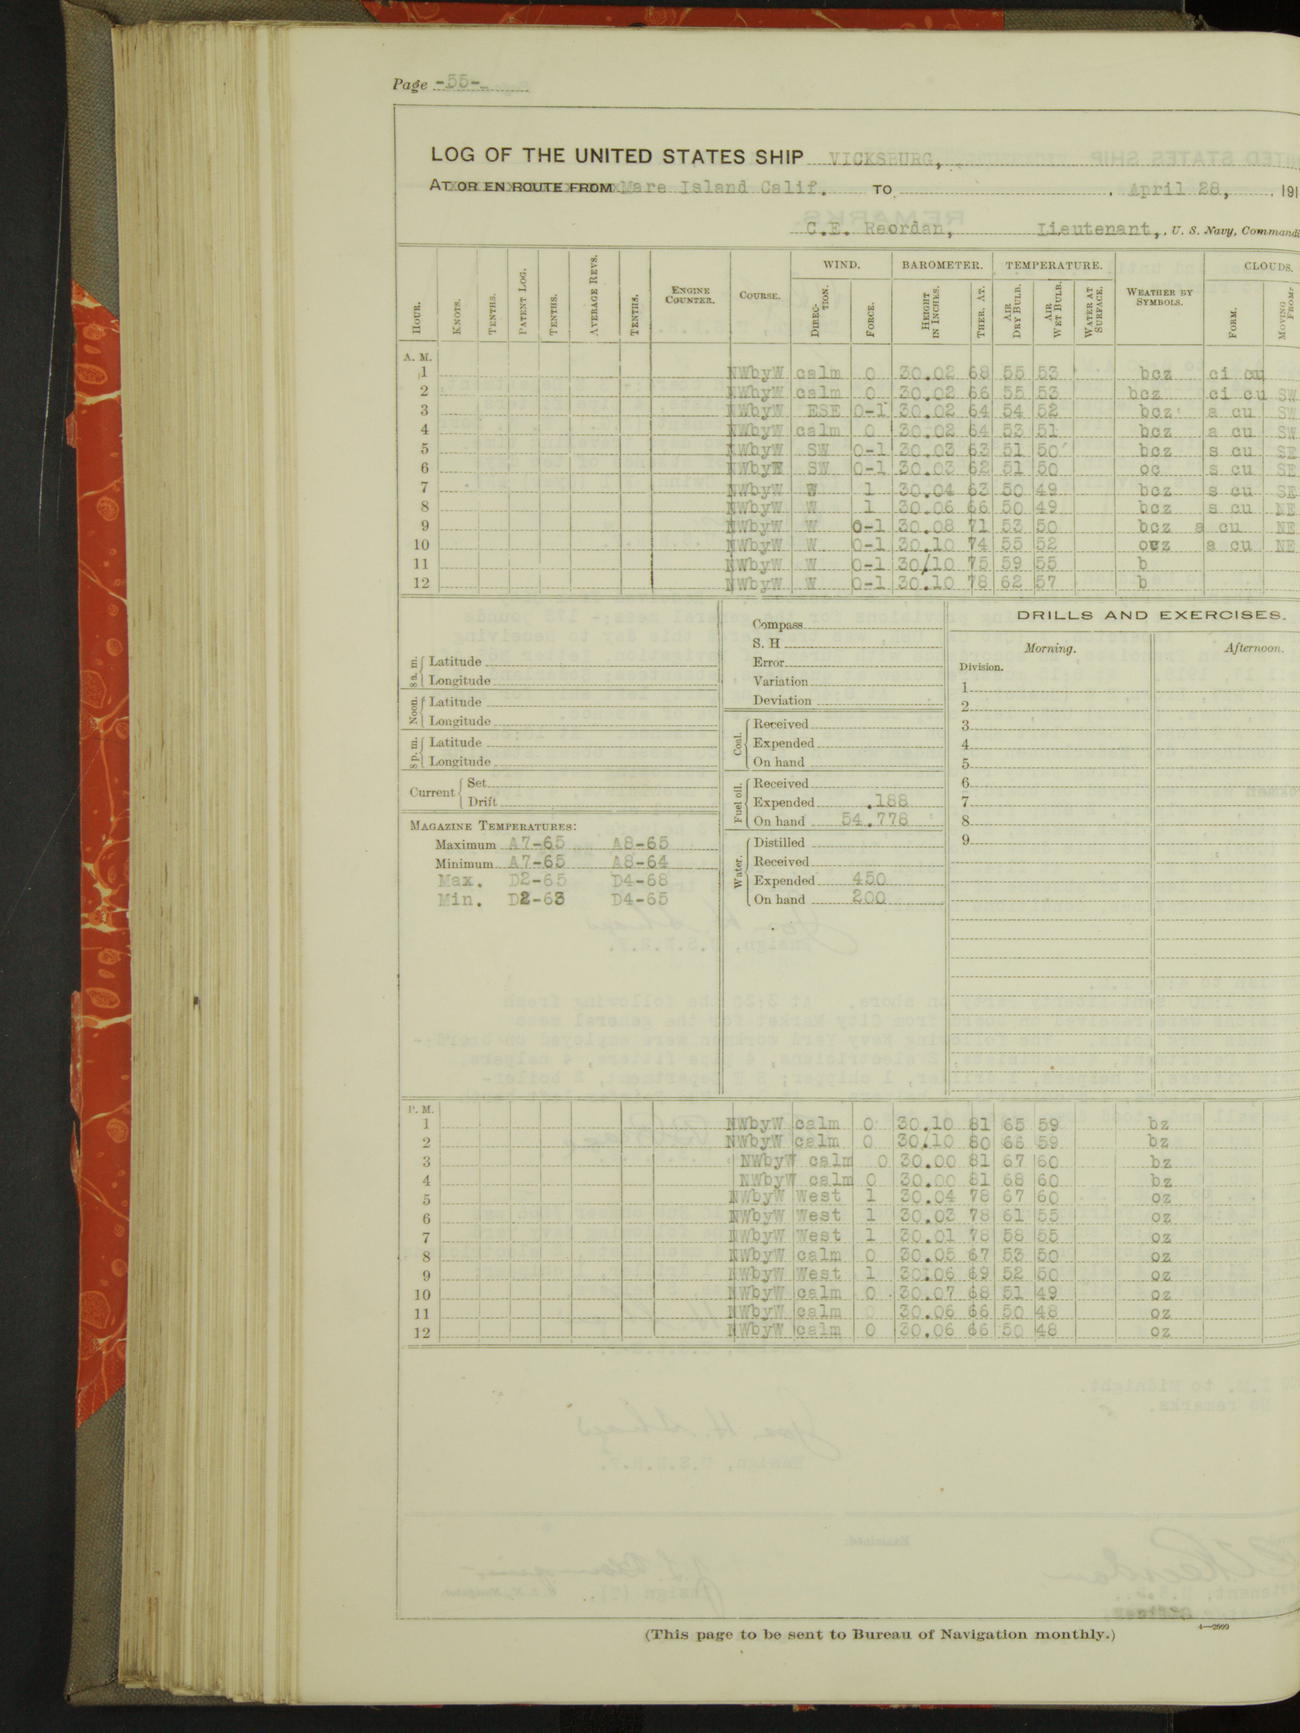 Page -55-
LOG OF THE UNITED STATES SHIP VICKSBURG,
AT OR EN ROUTE FROM Mare Island Calif. TO , April 28, , 191
C.E. Reordan, Lieutenant, , U. S. Navy, Commandi
HOUR. KNOTS. TENTHS. PATENT LOG. TENTHS. AVERAGE REVS. TENTHS. ENGINE COUNTER. COURSE. WIND. DIREC-TION. FORCE. BAROMETER. HEIGHT IN INCHES. THER. AT. TEMPERATURE. AIR DRY BULB. AIR WET BULB. WATER AT SURFACE. WEATHER BY SYMBOLS. CLOUDS. FORM. MOVING FROM-
A. M.
1 NWbyW calm 0 30.02 68 55 53 bcz ci cu
2 NWbyW calm 0 30.02 66 55 53 bcz ci cu SW
3 NWbyW ESE 0-1 30.02 64 54 52 bcz a cu SW
4 NWbyW calm 0 30.02 64 53 51 bcz a cu SW
5 NWbyW SW 0-1 30.03 63 51 50 bcz s cu SE
6 NWbyW SW 0-1 30.03 62 51 50 oc s cu SE
7 NWbyW W 1 30.04 63 50 49 bcz s cu SE
8 NWbyW W 1 30.06 66 50 49 bcz s cu NE
9 NWbyW W 0-1 30.08 71 53 50 bcz s cu NE
10 NWbyW W 0-1 30.10 74 55 52 a cu NE
11 NWbyW W 0-1 30/10 75 59 55 b
12 NWbyW W 0-1 30.10 78 62 57 b
8 a. m. Latitude
Longitude
Noon. Latitude
Longitude
8 p. m. Latitude
Longitude
Current Set
Drift
MAGAZINE TEMPERATURES:
Maximum A7-65 A8-65
Minimum A7-65 A8-64
Max. D2-65 D4-68
Min. D2-63 D4-65
Compass
S. H
Error
Variation
Deviation
Coal. Received
Expended
On hand
Fuel oil. Received
Expended .188
On hand 54.778
Water. Distilled
Received
Expended 450
On hand 200
DRILLS AND EXERCISES.
Morning. Afternoon.
Division.
1
2
3
4
5
6
7
8
9
P. M.
1 NWbyW calm 0 30.10 81 65 59 bz
2 NWbyW calm 0 30.10 80 66 59 bz
3 NWbyW calm 0 30.00 81 67 60 bz
4 NWbyW calm 0 30.00 81 68 60 bz
5 NWbyW West 1 30.04 78 67 60 oz
6 NWbyW West 1 30.03 78 61 55 oz
7 NWbyW West 1 30.01 78 58 55 oz
8 NWbyW calm 0 30.05 67 53 50 oz
9 NWbyW West 1 30.06 69 52 50 oz
10 NWbyW calm 0 30.07 68 51 49 oz
11 NWbyW calm 0 30.06 66 50 48 oz
12 NWbyW calm 0 30.06 66 50 48 oz
(This page to be sent to Bureau of Navigation monthly.)
4—2099